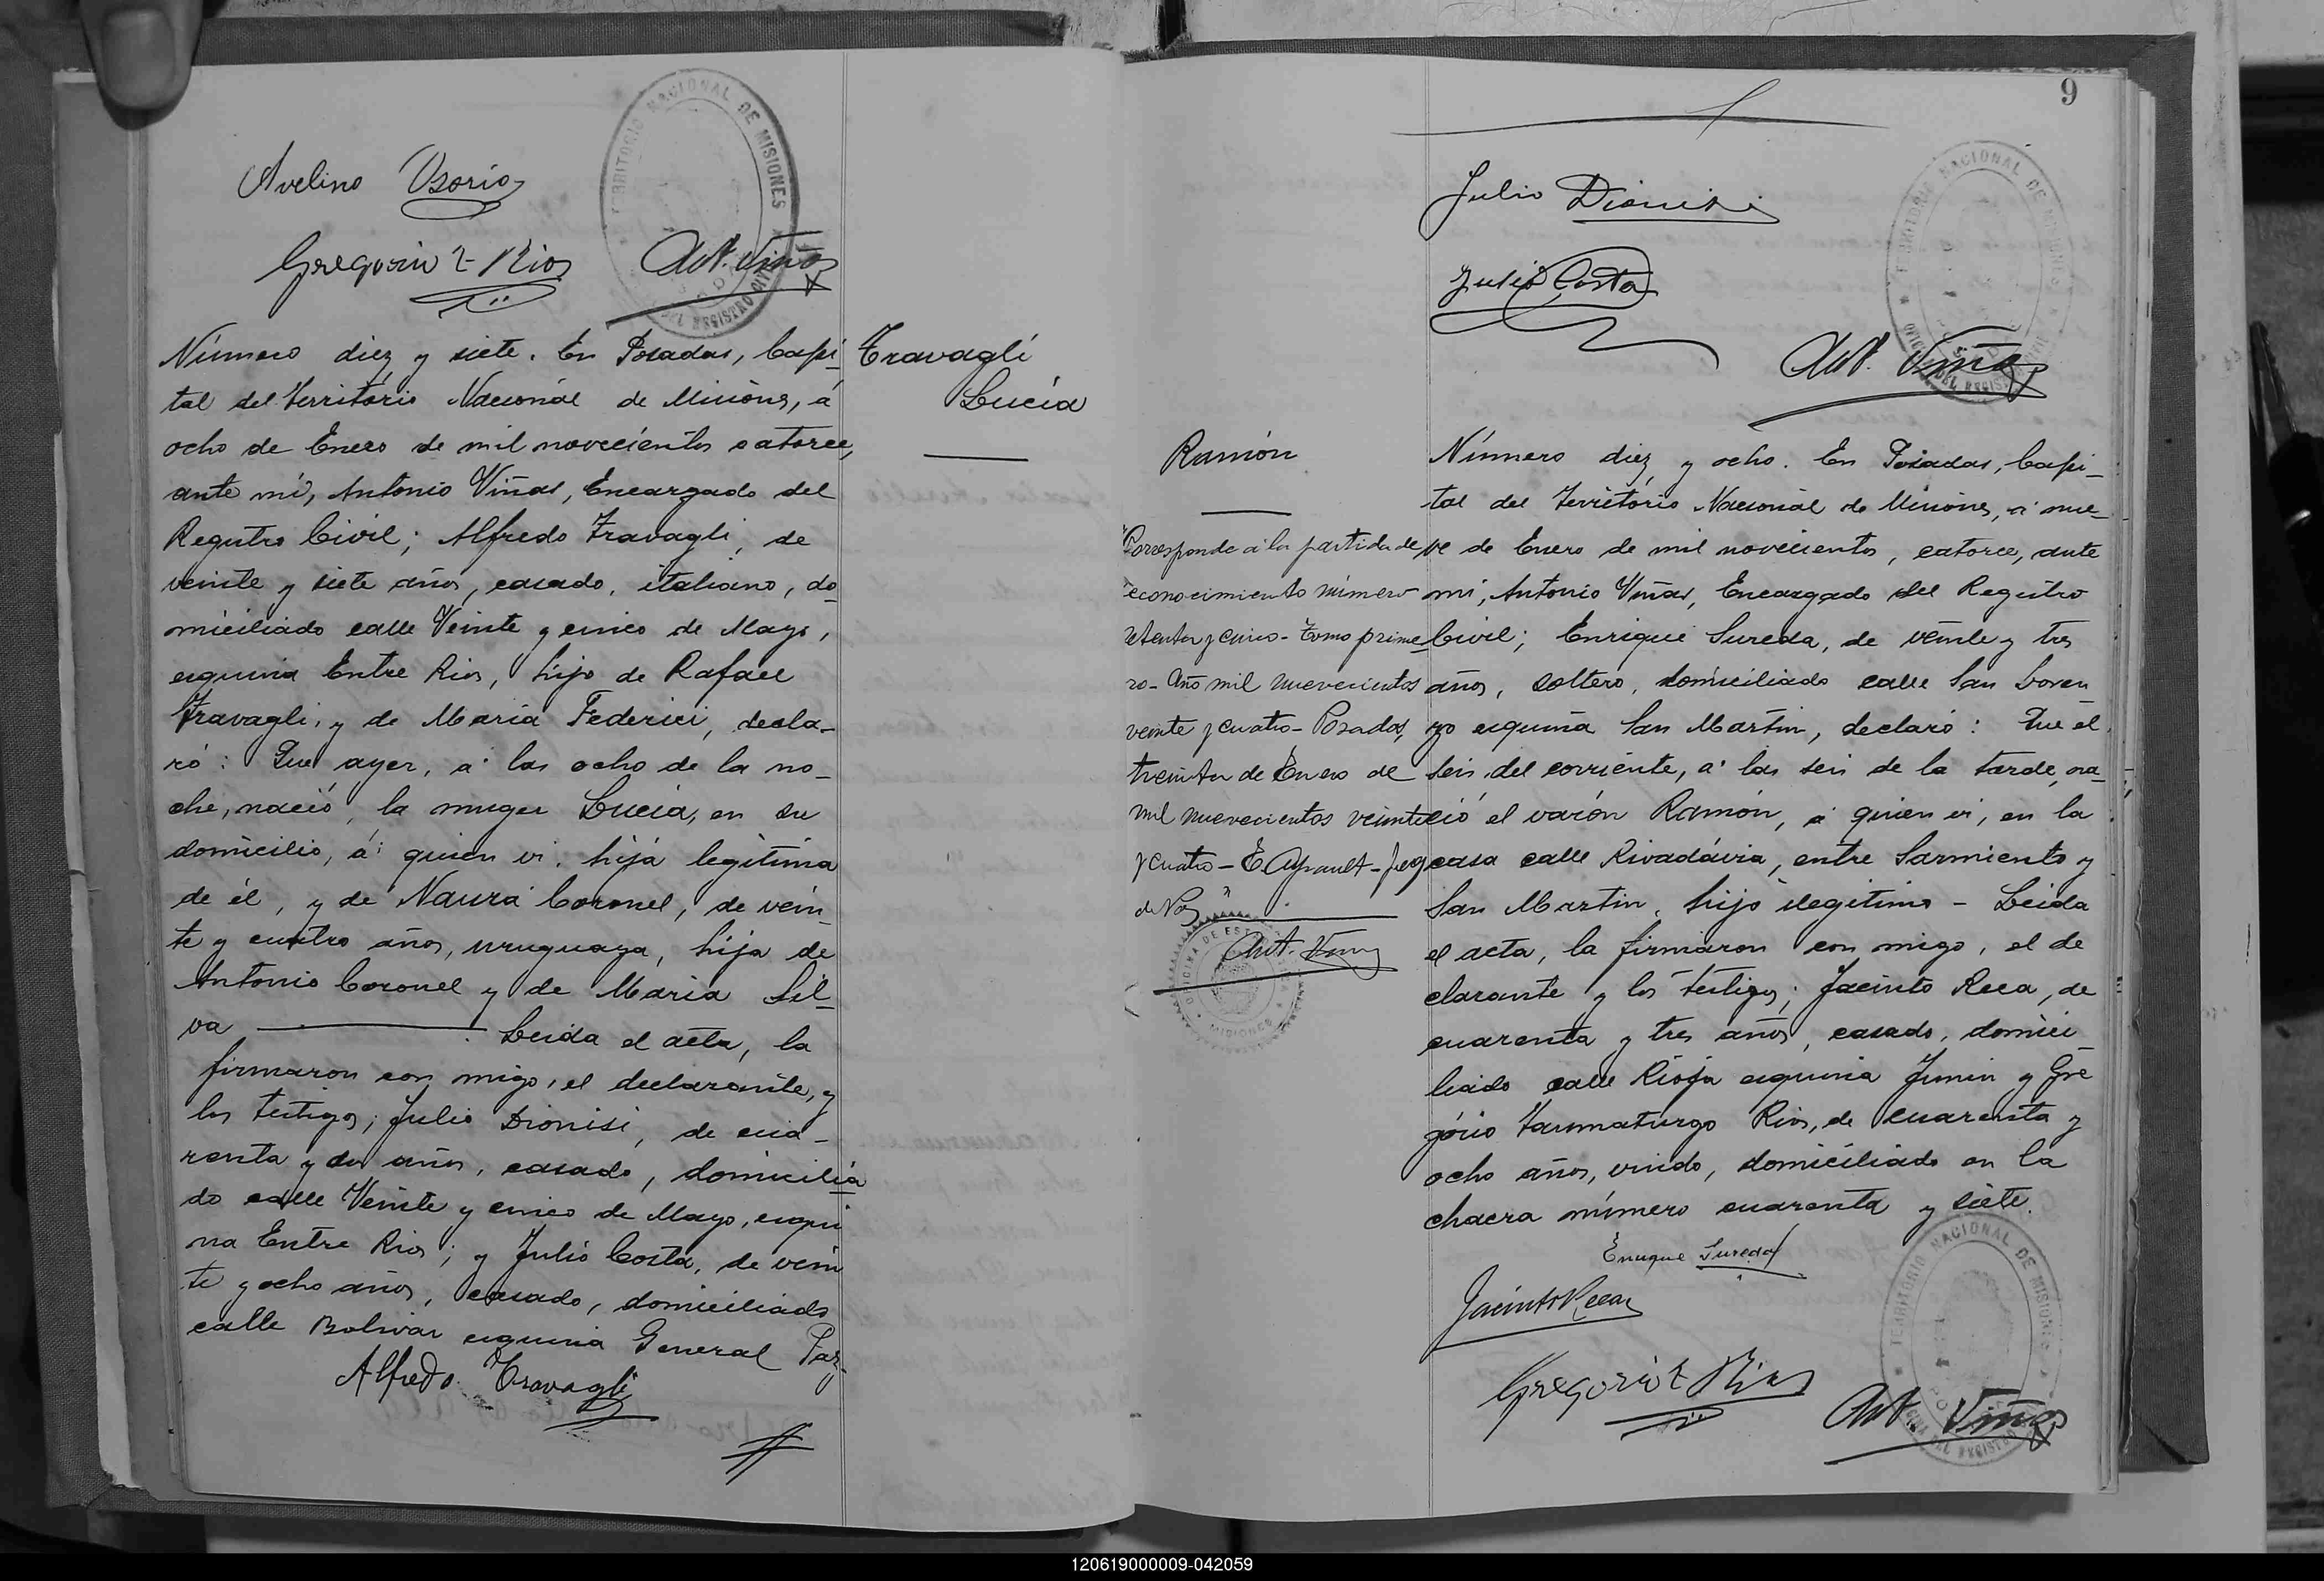 Avelino Osorio
Gregorio T. Rios Ant. Viñas
TERRITORIO NACIONAL DE MISIONES
DEL REGISTRO CIVIL
Travagli
Lucía
Número diez y siete. En Posadas, Capi-
tal del Territorio Nacional de Misiones, á
ocho de Enero de mil novecientos catorce,
ante mí, Antonio Viñas, Encargado del
Registro Civil; Alfredo Travagli, de
veinte y siete años, casado, italiano, do-
miciliado calle Veinte y cinco de Mayo,
esquina Entre Rios, hijo de Rafael
Travagli, y de María Federici, decla-
ró: Que ayer, á las ocho de la no-
che, nació, la muger Lucía, en su
domicilio, á quien ví, hija legítima
de él, y de Naura Coronel, de vein-
te y cuatro años, uruguaya, hija de
Antonio Coronel y de María Sil-
va. Leida el acta, la
firmaron con migo, el declarante, y
los testigos; Julio Dionisi, de cua-
renta y dos años, casado, domicilia-
do calle Veinte y cinco de Mayo, esqui
na Entre Rios; y Julio Costa, de vein
te y ocho años, casado, domiciliado
calle Bolivar esquina General Paz
Alfredo Travagli
9
Julio Dionisi
Julio Costa
Ant. Viñas
TERRITORIO NACIONAL DE MISIONES
OFICINA DEL REGISTRO
Ramón
"Corresponde á la partida de
reconocimiento número
setenta y cinco - Tomo prime-
ro - Año mil nuevecientos
veinte y cuatro - Posadas,
treinta de Enero de
mil nuevecientos veinte
y cuatro - E. Ayrault - Juez
de Paz"
Ant. Viñas
OFICINA DE
MISIONES
Número diez y ocho. En Posadas, Capi-
tal del Territorio Nacional de Misiones, á nue-
ve de Enero de mil novecientos, catorce, ante
mí, Antonio Viñas, Encargado del Registro
Civil; Enrique Sureda, de veinte y tres
años, soltero, domiciliado calle San Loren
zo esquina San Martin, declaró: Que el
seis del corriente, á las seis de la tarde, na-
ció el varón Ramón, á quien ví, en la
casa calle Rivadávia, entre Sarmiento y
San Martin, hijo ilegítimo - Leida
el acta, la firmaron con migo, el de
clarante y los testigos; Jacinto Reca, de
cuarenta y tres años, casado, domici
liado calle Rioja esquina Junin y Gre
gório Taumaturgo Rios, de cuarenta y
ocho años, viudo, domiciliado en la
chacra número cuarenta y siete.
Enrique Sureda
Jacinto Reca
Gregorio T. Rios
Ant. Viñas
TERRITORIO NACIONAL DE MISIONES
OFICINA DEL REGISTRO
120619000009-042059